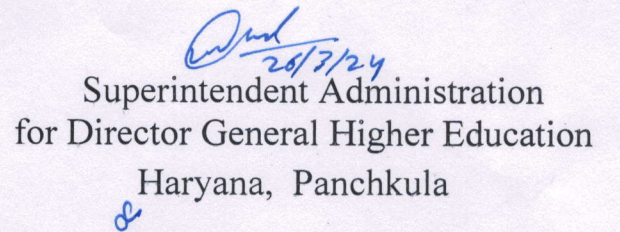 26/3/24
Superintendent Administration
for Director General Higher Education
Haryana, Panchkula